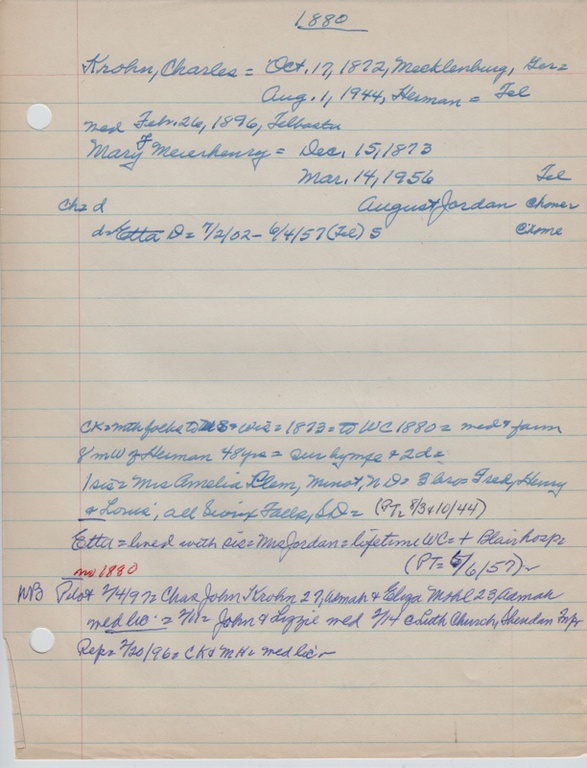 1880
Krohn, Charles = Oct. 17, 1872, Mecklenburg, Ger =
Aug. 1, 1944, Herman = Tel
med Febr. 26, 1896, Telbasta
Mary F Meierhenry = Dec. 15, 1873
Mar. 14, 1956 Tel
ch = d August Jordan
d = Etta D = 7/2/02 - 6/4/57 (Tel) S
CK = mth folks to Wis = 1873 = to WC 1880 = med + farm
8 m W of Herman 48 yrs = sur by mps + 2d =
1 sis = Mrs Amelia Klem, Minot, ND = 3 bros = Fred, Henry
& Louis, all Sioux Falls, SD = (PT = 8/3 & 10/44)
Etta = lived with sis = Mrs Jordan = lifetime WC = + Blair hosp =
(PT = 6/6/57)
no 1880
NB Pilot 2/4/97 = Chas John Krohn 27, Admah & Eliza Mohl 23, Admah
med lic = 2/18 = John & Lizzie med 2/14 c Luth Church, Sheridan Twp
Rep = 2/20/96 = CK & MH = med lic